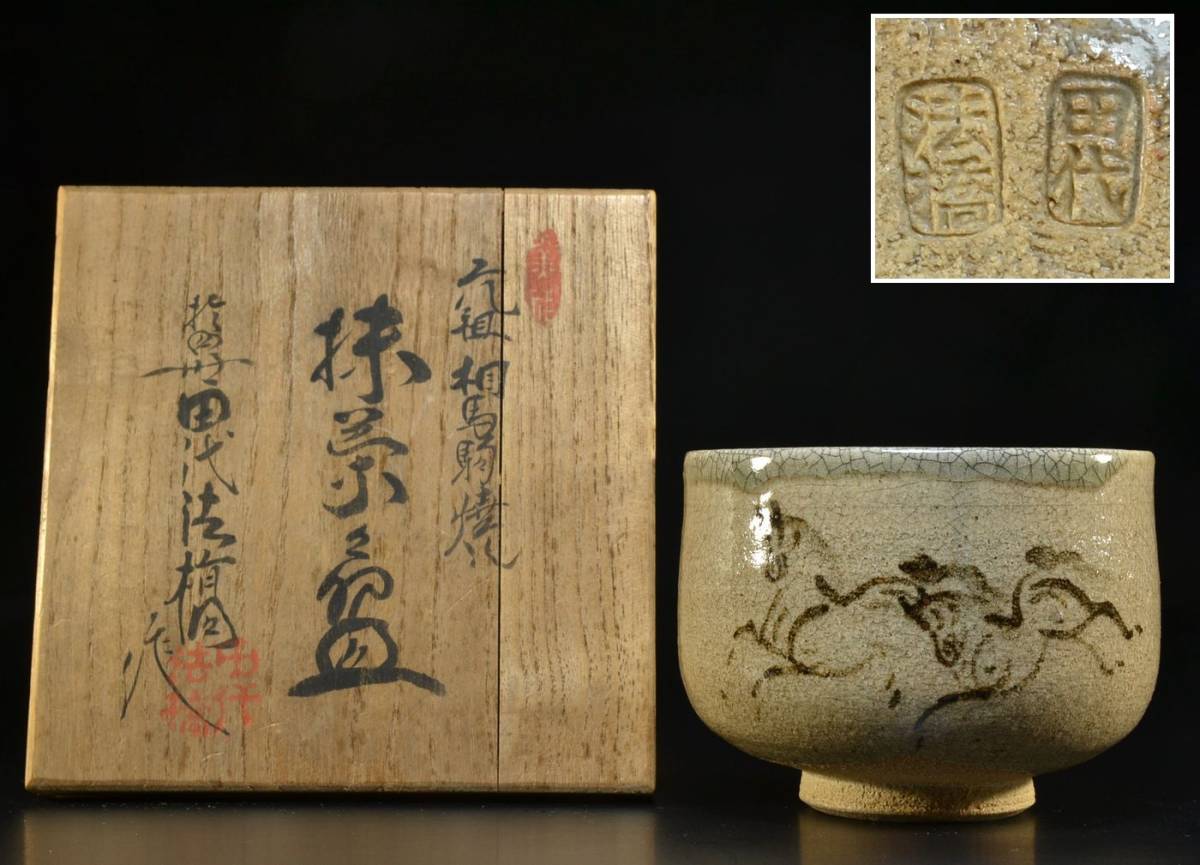 元祖相馬駒焼
抹茶盌
拾四世田代法橋作
田代
法橋
田代
法橋